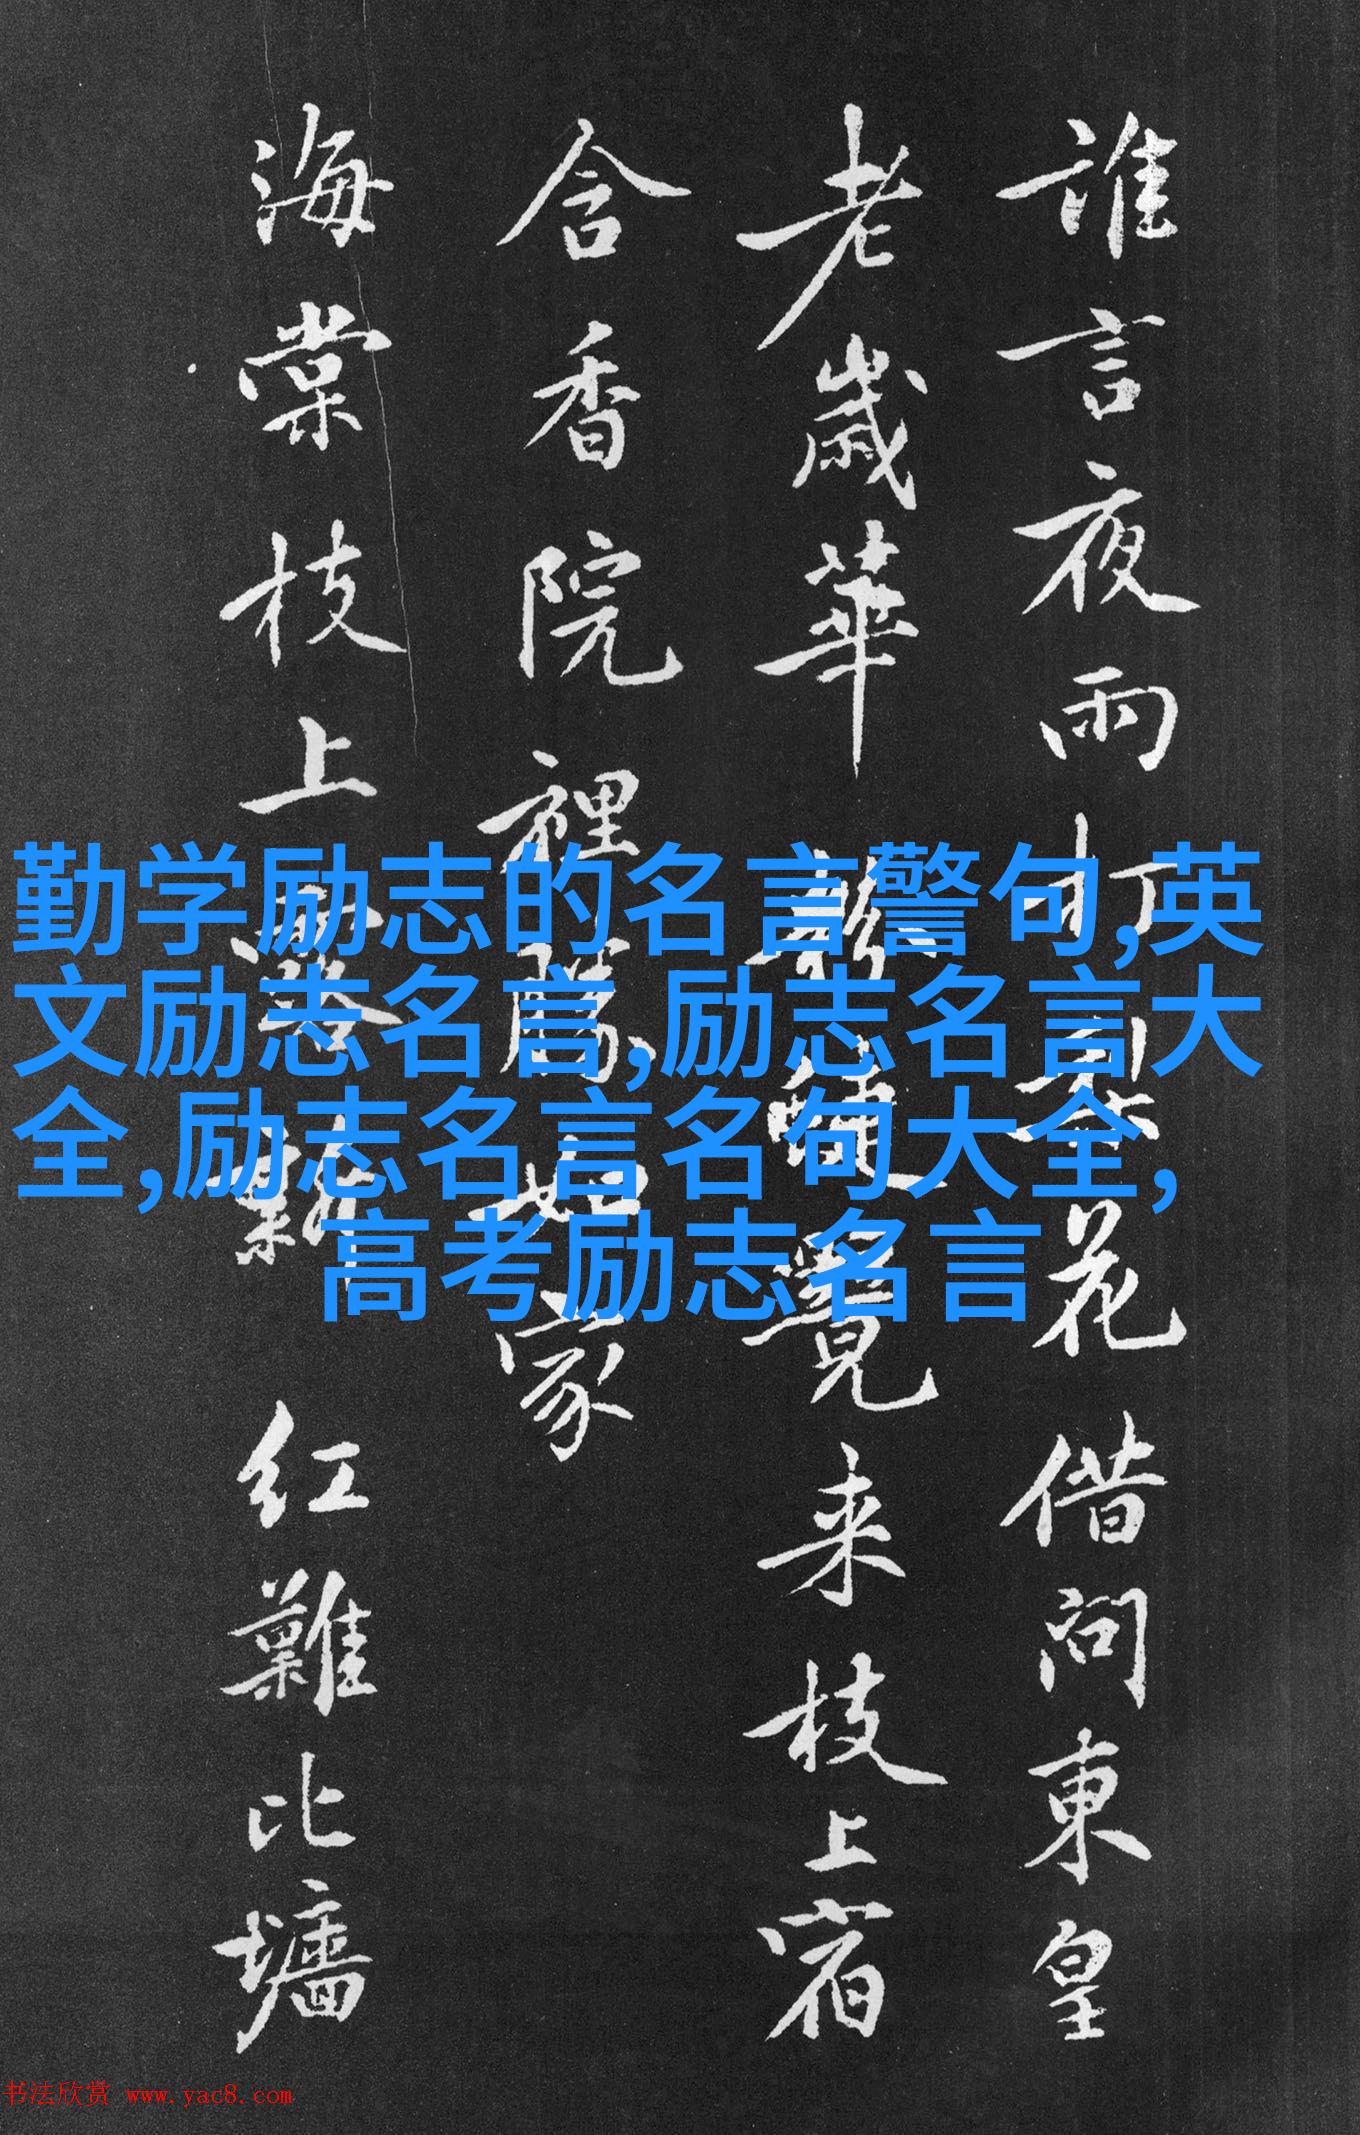 誰言夜雨打梨花借問東皇
老歲華覺来枝上宿
含香院裡勝如家
海棠枝上新红難比墙
勤学励志的名言警句,英
文励志名言,励志名言大
全,励志名言名句大全,
高考励志名言
书法欣赏 www.yac8.com